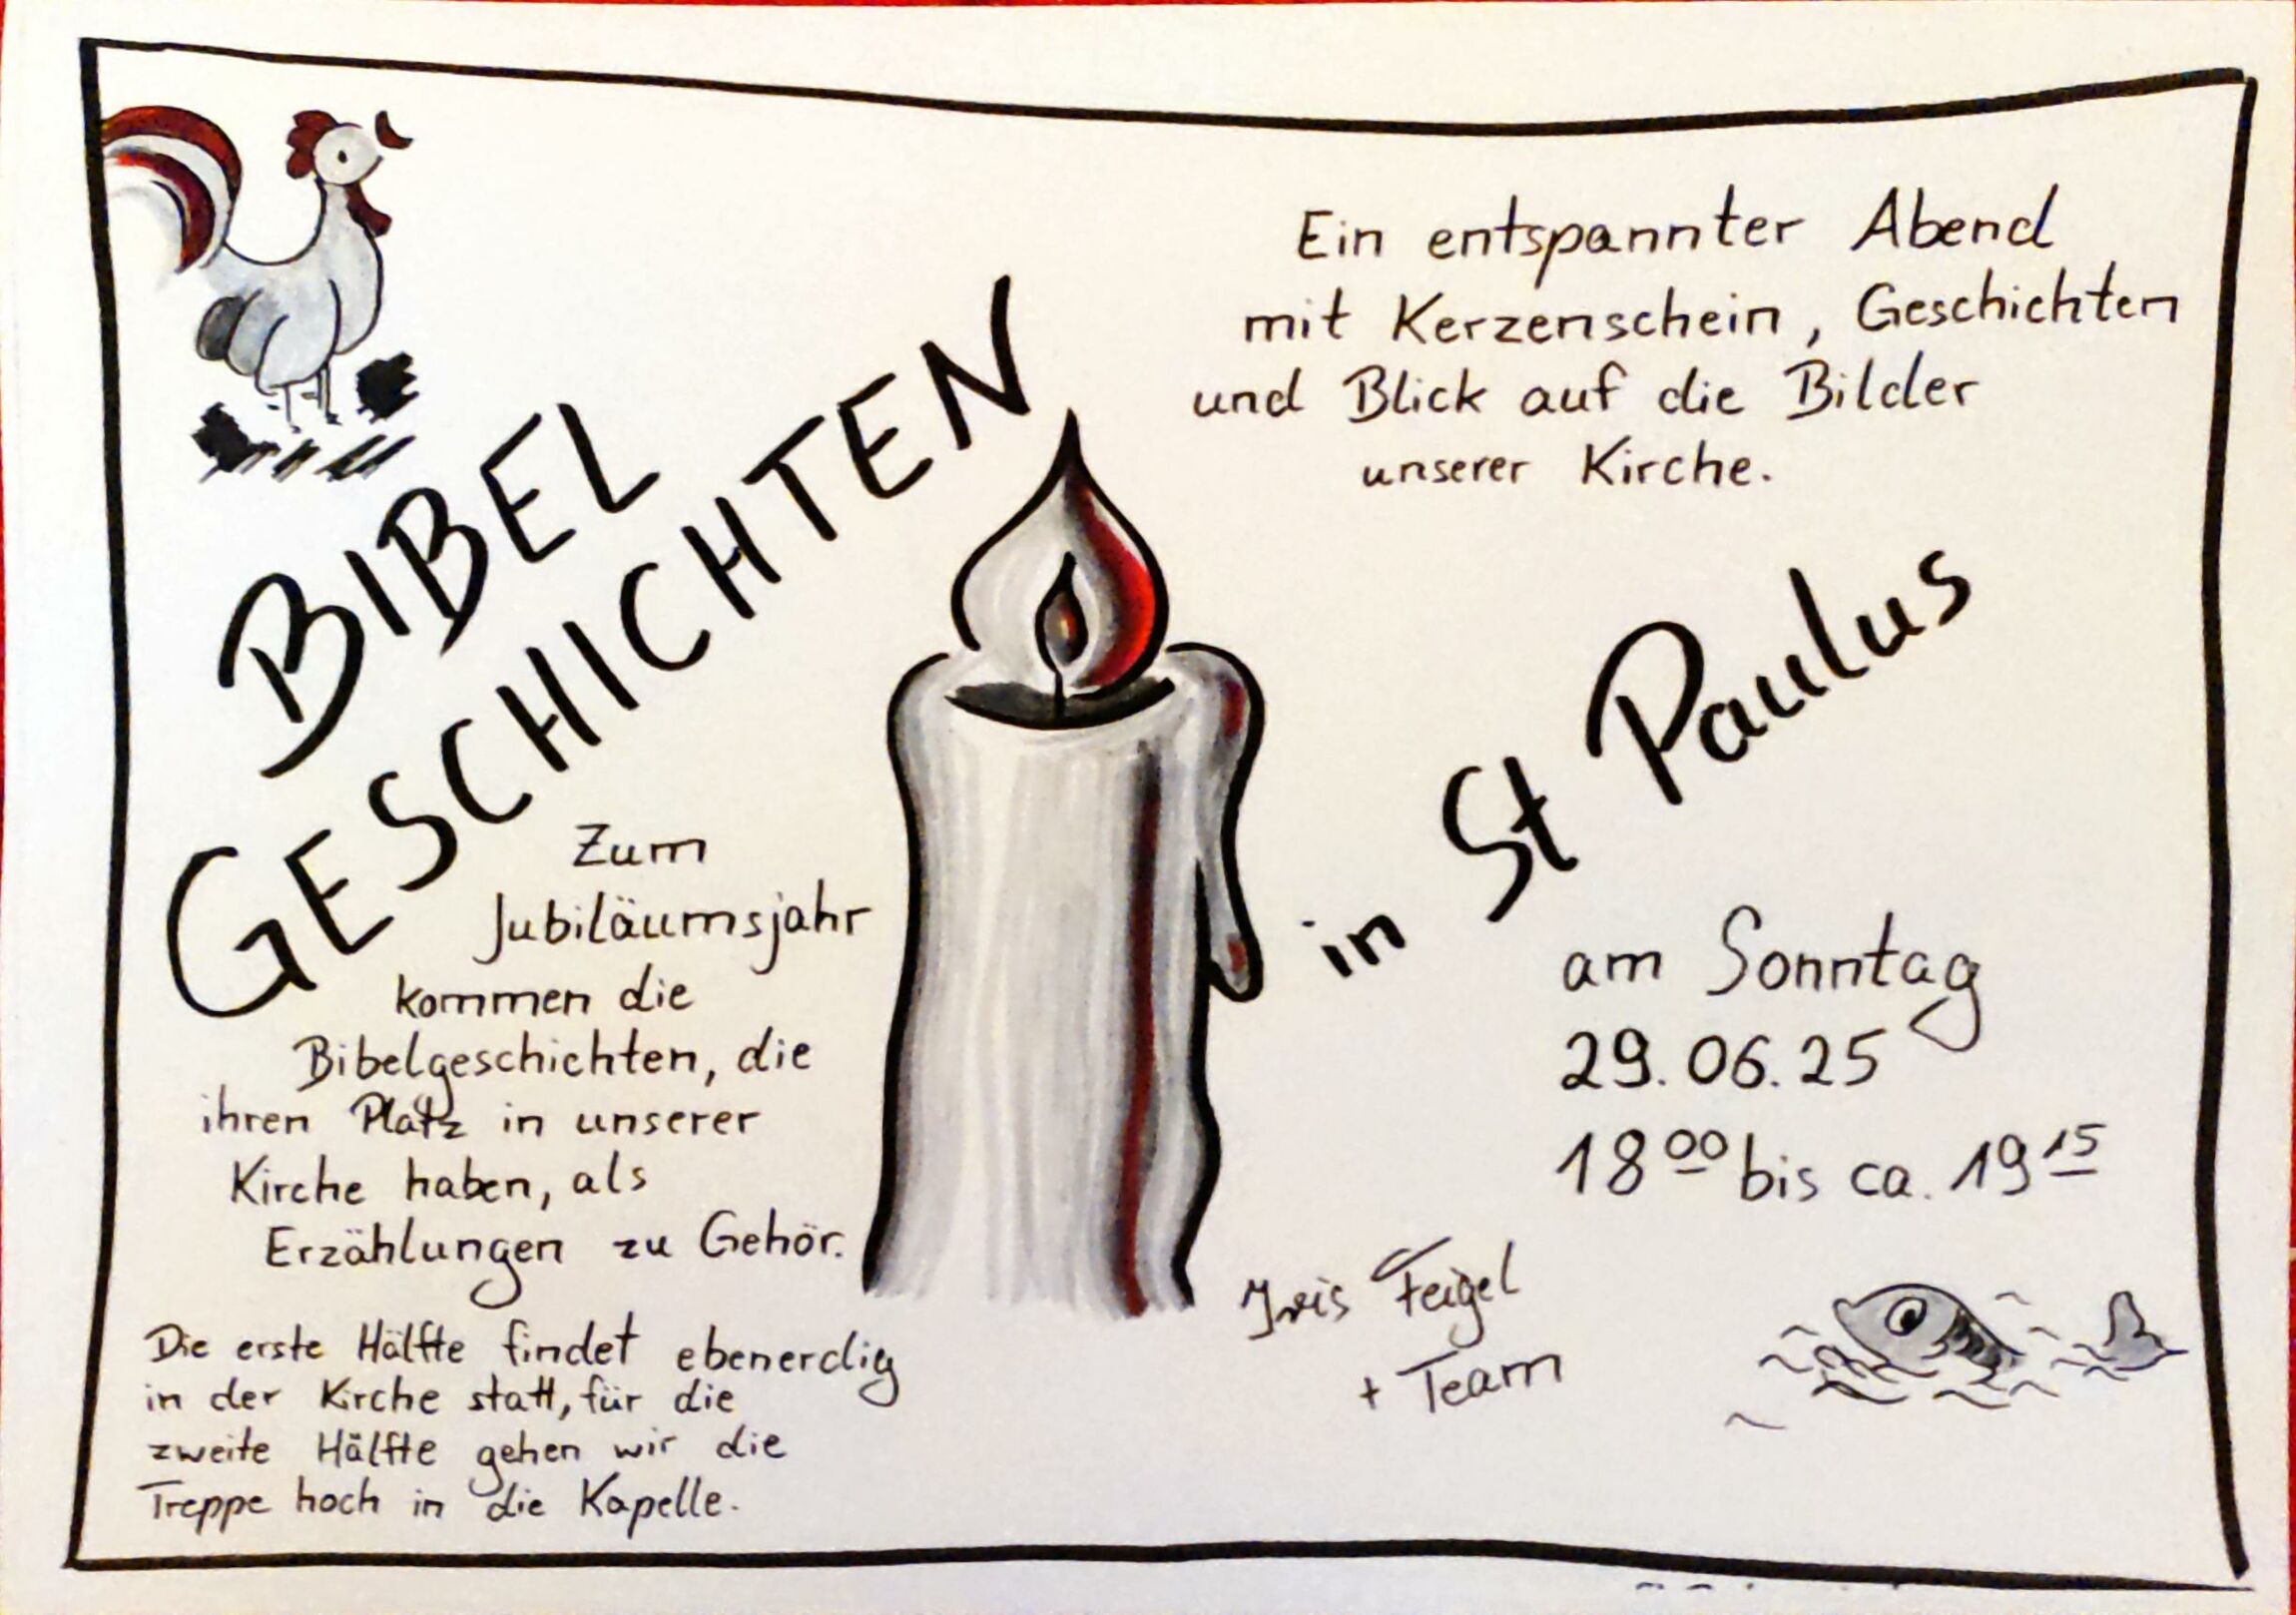 BIBEL
GESCHICHTEN
Ein entspannter Abend
mit Kerzenschein, Geschichten
und Blick auf die Bilder
unserer Kirche.
in St Paulus
Zum
Jubiläumsjahr
kommen die
Bibelgeschichten, die
ihren Platz in unserer
Kirche haben, als
Erzählungen zu Gehör.
am Sonntag
29.06.25
18 00 bis ca. 19 15
Iris Feigel
+ Team
Die erste Hälfte findet ebenerdig
in der Kirche statt, für die
zweite Hälfte gehen wir die
Treppe hoch in die Kapelle.